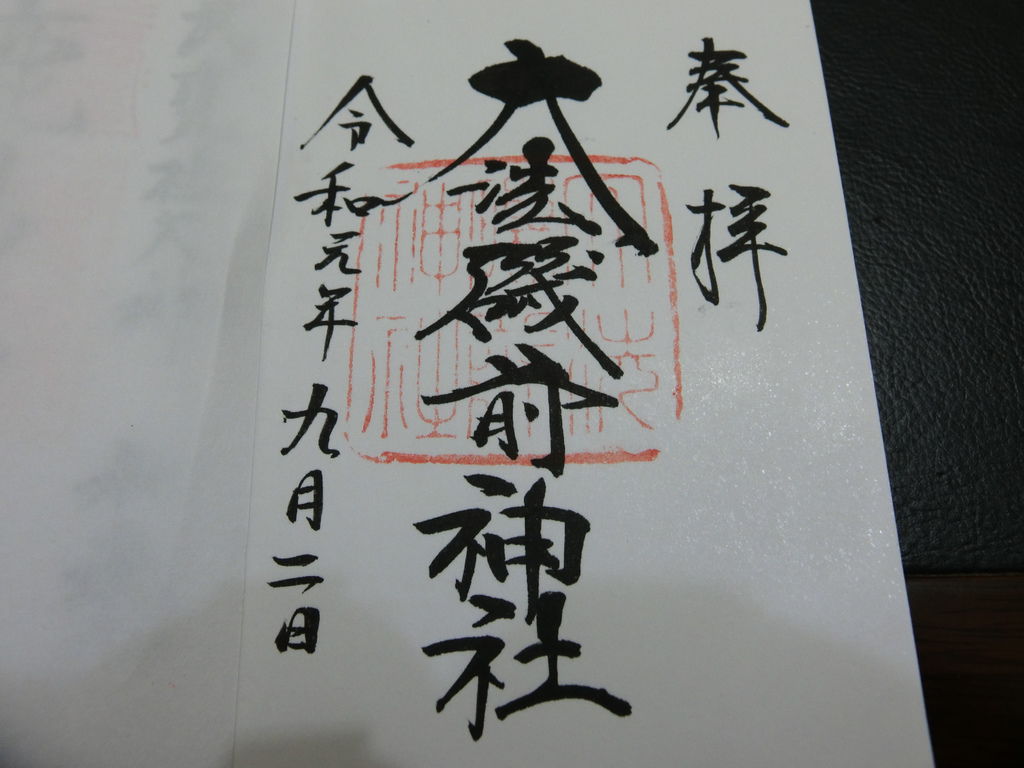 奉拝
大洗磯前神社
令和元年九月二日